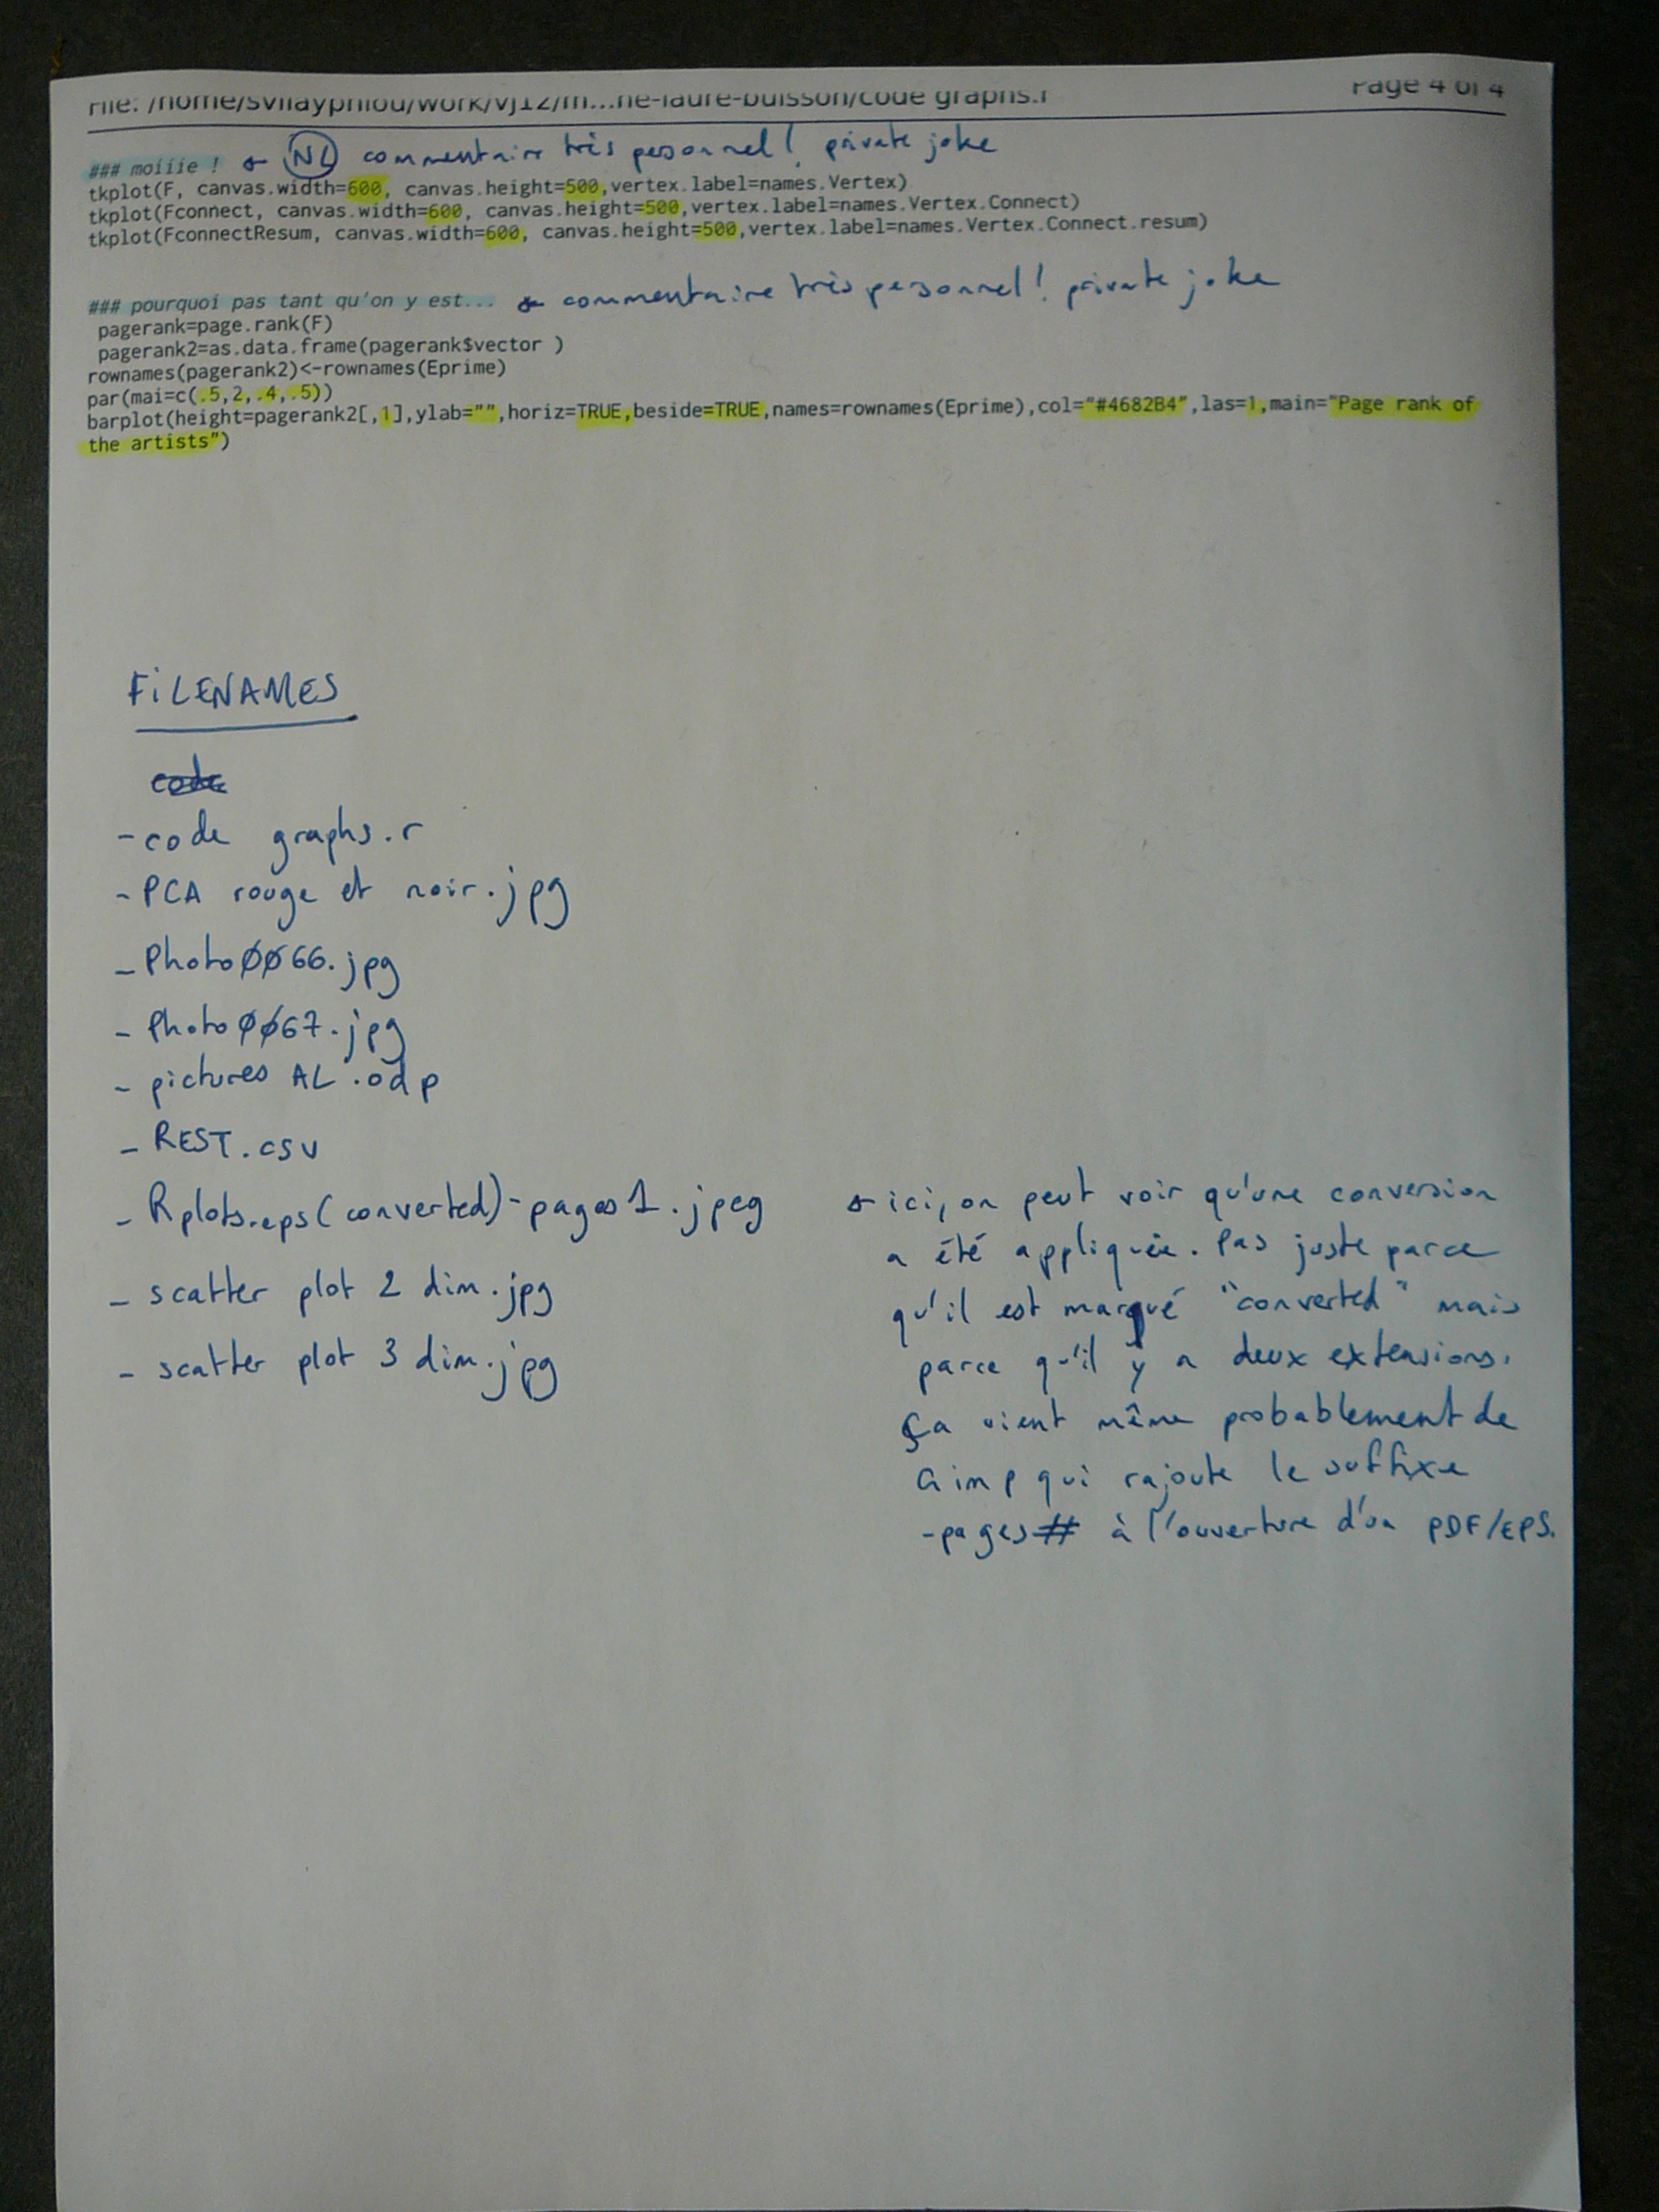 File: /home/svilayphiou/work/vj12/m...ne-laure-buisson/code graphs.r Page 4 of 4
### moiiie ! ← NL commentaire très personnel! private joke
tkplot(F, canvas.width=600, canvas.height=500,vertex.label=names.Vertex)
tkplot(Fconnect, canvas.width=600, canvas.height=500,vertex.label=names.Vertex.Connect)
tkplot(FconnectResum, canvas.width=600, canvas.height=500,vertex.label=names.Vertex.Connect.resum)
### pourquoi pas tant qu'on y est... ← commentaire très personnel! private joke
pagerank=page.rank(F)
pagerank2=as.data.frame(pagerank$vector )
rownames(pagerank2)<-rownames(Eprime)
par(mai=c(.5,2,.4,.5))
barplot(height=pagerank2[,1],ylab="",horiz=TRUE,beside=TRUE,names=rownames(Eprime),col="#4682B4",las=1,main="Page rank of
the artists")
FiLENAMES
code
- code graphs.r
- PCA rouge et noir.jpg
- Photo0066.jpg
- Photo0067.jpg
- pictures AL.odp
- REST.csv
- Rplots.eps(converted)-pages1.jpeg ← ici, on peut voir qu'une conversion
a été appliquée. Pas juste parce
- scatter plot 2 dim.jpg
qu'il est marqué "converted" mais
- scatter plot 3 dim.jpg
parce qu'il y a deux extensions.
ça vient même probablement de
Gimp qui rajoute le suffixe
-pages# à l'ouverture d'un PDF/EPS.